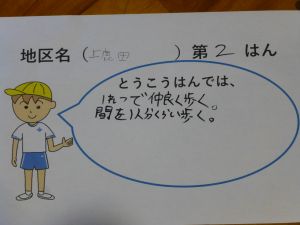 地区名（上鹿田）第2はん
とうこうはんでは、
1れつで仲良く歩く。
間を1人分くらい歩く。